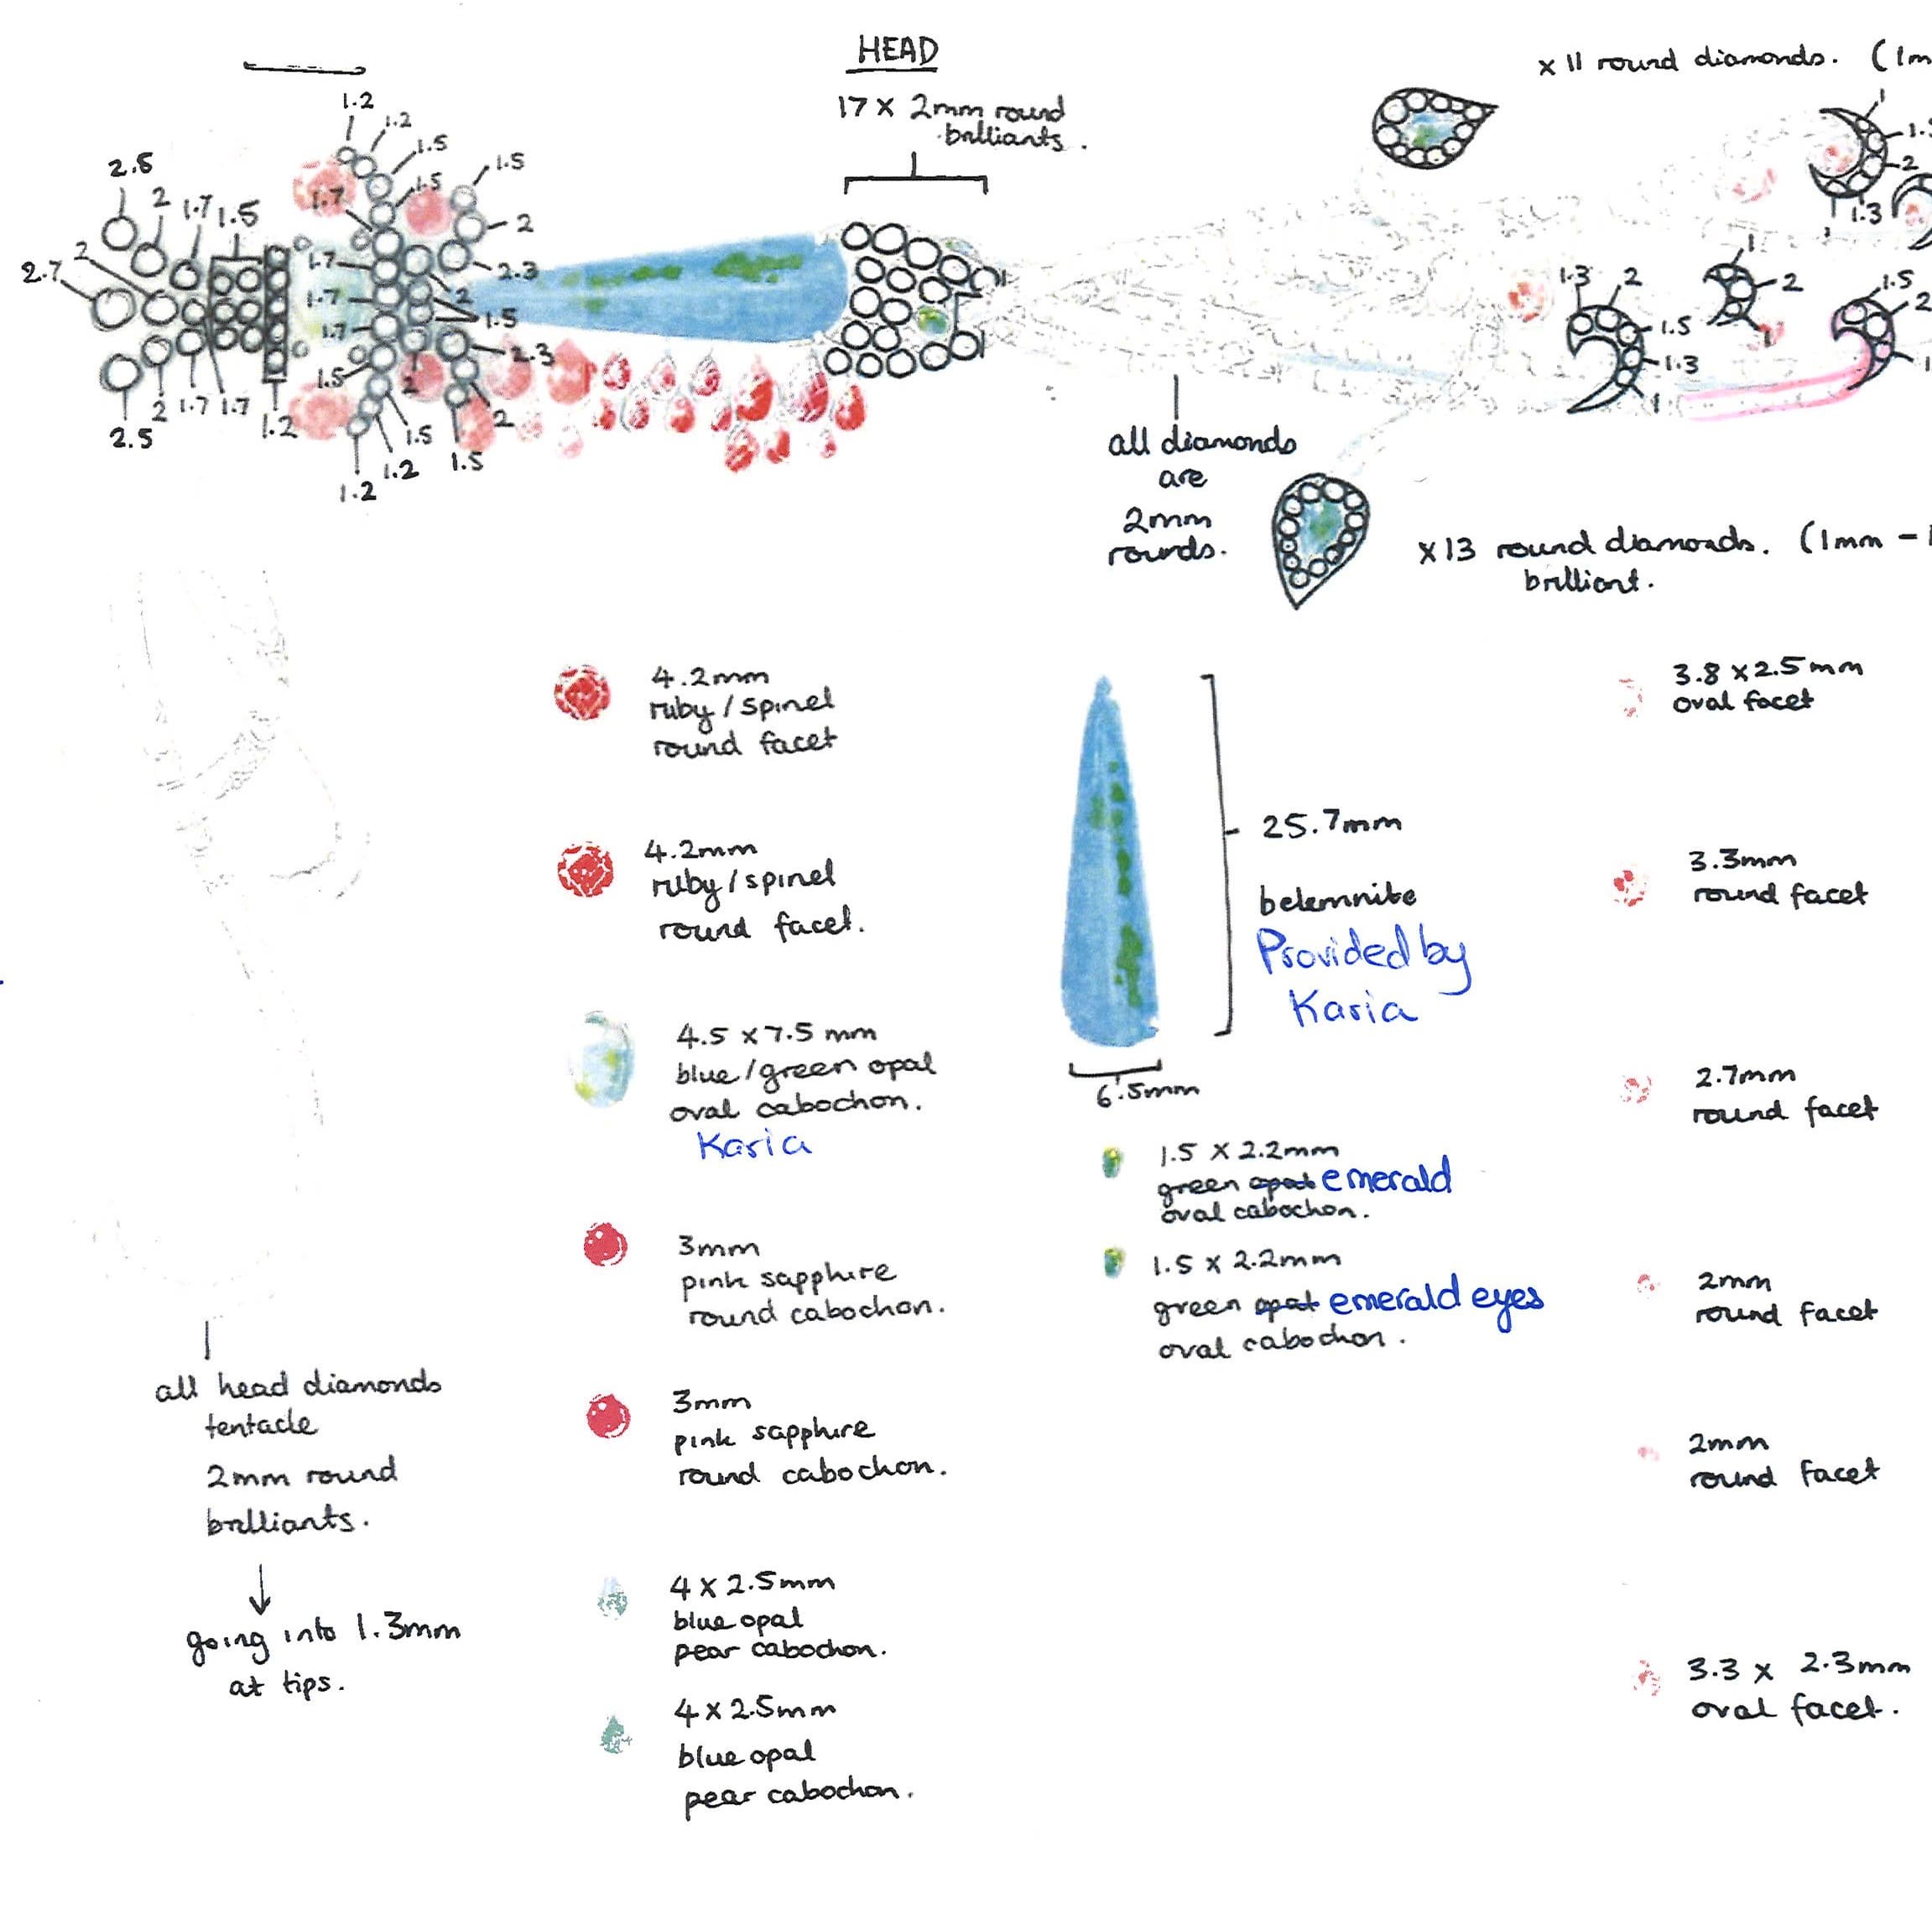 HEAD
17 x 2mm round
brilliants.
x 11 round diamonds. (1m
1.2
1.2
1.5
1.5
1.5
1.7
2.5
2
1.7
1.5
2
2.7
1.7
1.7
1.7
2
2.3
2
1.5
2.3
1.5
2
2
2.5
2
1.7
1.7
1.2
1.5
1.2
1.2
1.5
1
2
1.3
1
1.3
2
1.5
1.3
1
1
2
1
1.5
2
1
all diamonds
are
2mm
rounds.
x13 round diamonds. (1mm -
brilliant.
4.2mm
ruby / spinel
round facet
4.2mm
ruby / spinel
round facet.
4.5 x 7.5 mm
blue/green opal
oval cabochon.
Karia
3mm
pink sapphire
round cabochon.
3mm
pink sapphire
round cabochon.
4 x 2.5mm
blue opal
pear cabochon.
4 x 2.5mm
blue opal
pear cabochon.
25.7mm
belemnite
Provided by
Karia
6.5mm
1.5 x 2.2mm
green opal emerald
oval cabochon.
1.5 x 2.2mm
green opal emerald eyes
oval cabochon.
3.8 x 2.5mm
oval facet
3.3mm
round facet
2.7mm
round facet
2mm
round facet
2mm
round facet
3.3 x 2.3mm
oval facet.
all head diamonds
tentacle
2mm round
brilliants.
going into 1.3mm
at tips.